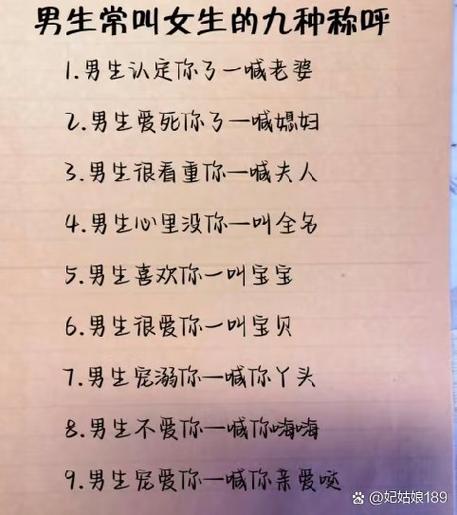 男生常叫女生的九种称呼
1.男生认定你了一喊老婆
2.男生爱死你了一喊媳妇
3.男生很看重你一喊夫人
4.男生心里没你一叫全名
5.男生喜欢你一叫宝宝
6.男生很爱你一叫宝贝
7.男生宠溺你一喊你丫头
8.男生不爱你一喊你嗨嗨
9.男生宠爱你一喊你亲爱哒
妃姑娘189